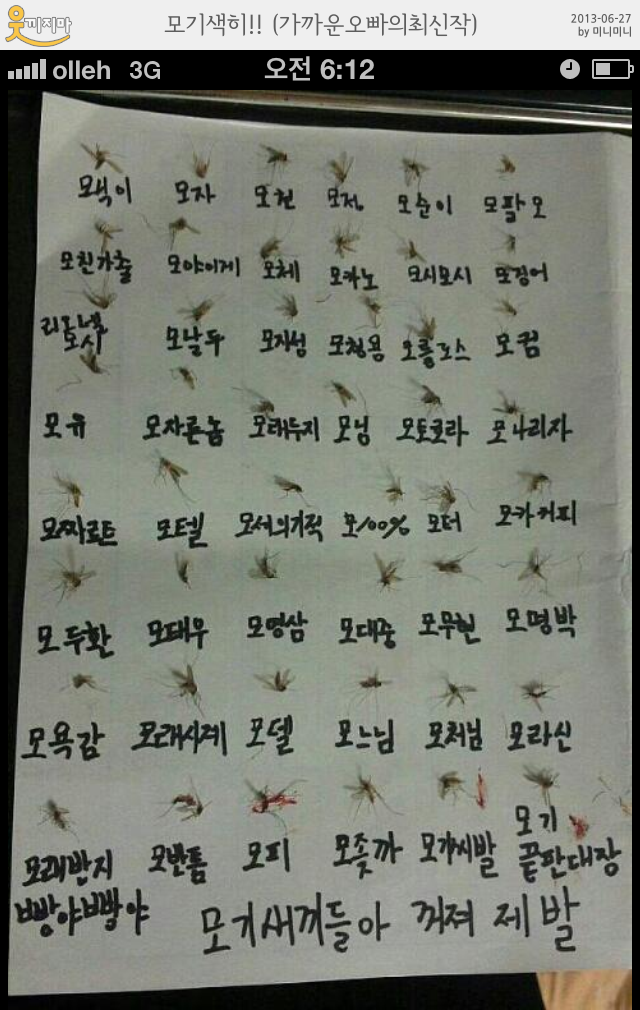 웃끼지마
모기색히!! (가까운오빠의최신작)
2013-06-27
by 미니미니
olleh 3G 오전 6:12
모식이 모자 모천 모저 모순이 모팔모
모친가출 모야이게 모체 모카노 모시모시 모징어
리오넬
모시 모날두 모지성 모청용 모릉포스 모컴
모유 모자른놈 모태두지 모님 모토로라 모나리자
모짜르트 모텔 모서의기적 모100% 모더 모카커피
모두환 모태우 모영삼 모대중 모무현 모명박
모욕감 모래시계 모델 모느님 모처님 모라신
모래반지
빵야빵야 모반듬 모피 모좃까 모가씨발 모기
끝판대장
모기새끼들아 꺼져 제발